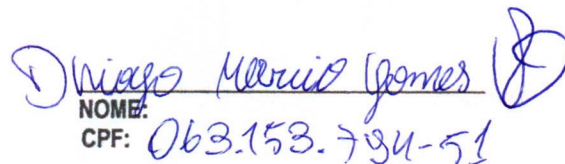 Thiago Marcio Gomes
NOME:
CPF: 063.153.794-51